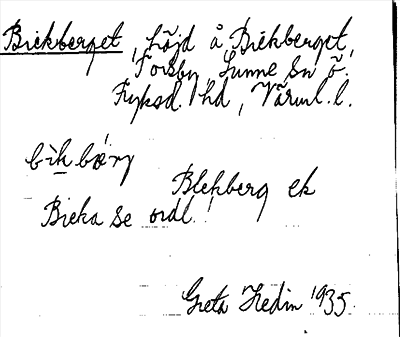 Biekberget, höjd å Biekberget,
Forsby, Sunne sn ö.
Fryksd. hd, Värml. l.
Blekberg ek
Bieka se ordl.!
Greta Hedin 1935.